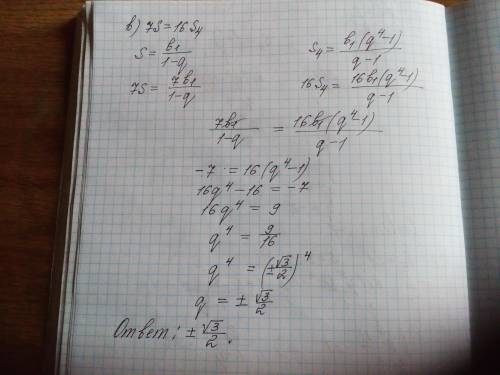 в) 7S = 16 S₄
S = b₁/(1-q)    S₄ = b₁(q⁴-1)/(q-1)
7S = 7b₁/(1-q)    16S₄ = 16b₁(q⁴-1)/(q-1)
7b₁/(1-q) = 16b₁(q⁴-1)/(q-1)
-7 = 16(q⁴-1)
16q⁴-16 = -7
16q⁴ = 9
q⁴ = 9/16
q⁴ = (±√3/2)⁴
q = ± √3/2
Ответ: ± √3/2.